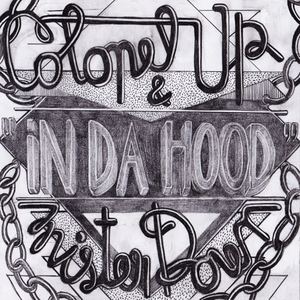 Colonel Up
&
"IN DA HOOD"
Mister Down